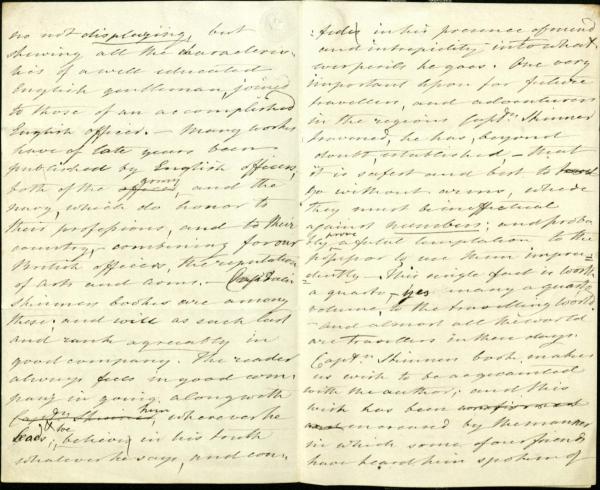 no not displaying, but
shewing all the characteris-
tics of a well educated
English gentleman, joined
to those of an accomplished
English officer. — Many works
have of late years been
published by English officers,
both of the army, and the
navy, which do honor to
their professions, and to their
country, – combining for our
British officers, the reputation
of arts and arms. Captain
Skinners books are among
these; and will as such last
and rank agreeably in
good company. The reader
always feels in good com-
pany in going along with
him wherever he
leads; believing in his truth
whatever he says, and con-
fides in his presence of mind
and intrepidity, into what
ever perils he goes. One very
important upon for future
travellers, and adventurers
in the regions Captn. Skinner
traversed, he has, beyond
doubt, established, – that
it is safest and best to
go without arms, where
they must be ineffectual
against numbers; and proba-
bly prove a fatal temptation to the
possessor to use them impru=
=dently – This single fact is worth
a quarto, – yes many a quarto
volume, to the travelling world
– and almost all the world
are travellers in these days.
Captn. Skinners book makes
us wish to be acquainted
with the author; and this
wish has been
increased by the manner
in which some of our friends
have heard him spoken of